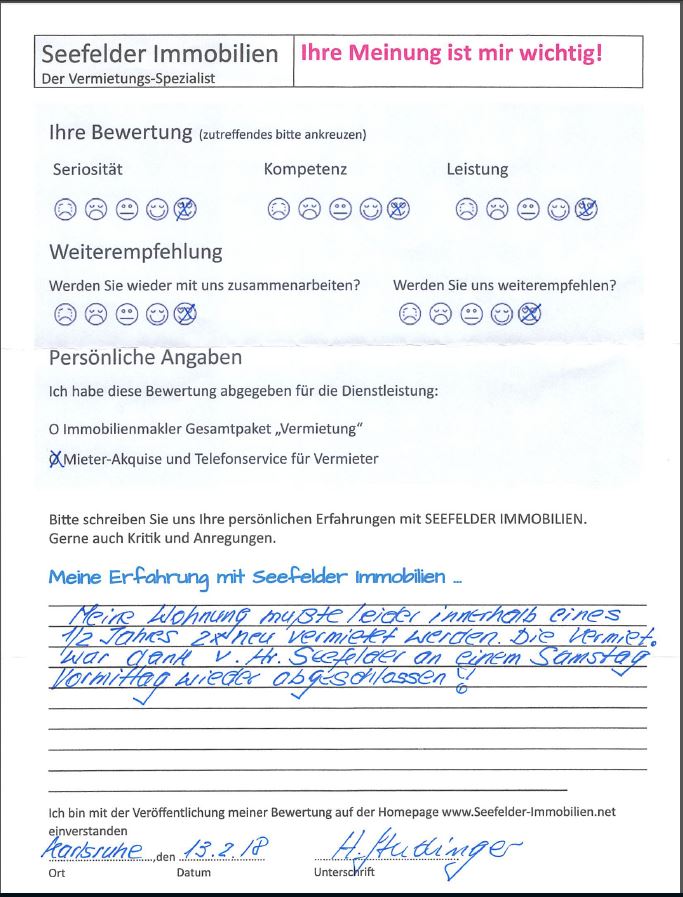 Seefelder Immobilien
Der Vermietungs-Spezialist
Ihre Meinung ist mir wichtig!
Ihre Bewertung (zutreffendes bitte ankreuzen)
Seriosität Kompetenz Leistung
Weiterempfehlung
Werden Sie wieder mit uns zusammenarbeiten? Werden Sie uns weiterempfehlen?
Persönliche Angaben
Ich habe diese Bewertung abgegeben für die Dienstleistung:
O Immobilienmakler Gesamtpaket „Vermietung“
O Mieter-Akquise und Telefonservice für Vermieter
Bitte schreiben Sie uns Ihre persönlichen Erfahrungen mit SEEFELDER IMMOBILIEN.
Gerne auch Kritik und Anregungen.
Meine Erfahrung mit Seefelder Immobilien ...
Meine Wohnung mußte leider innerhalb eines
1/2 Jahres 2x neu vermietet werden. Die Vermiet.
war dank v. Hr. Seefelder an einem Samstag
Vormittag wieder abgeschlossen!
Ich bin mit der Veröffentlichung meiner Bewertung auf der Homepage www.Seefelder-Immobilien.net
einverstanden
Karlsruhe, den 13.2.18 H.
Ort Datum Unterschrift